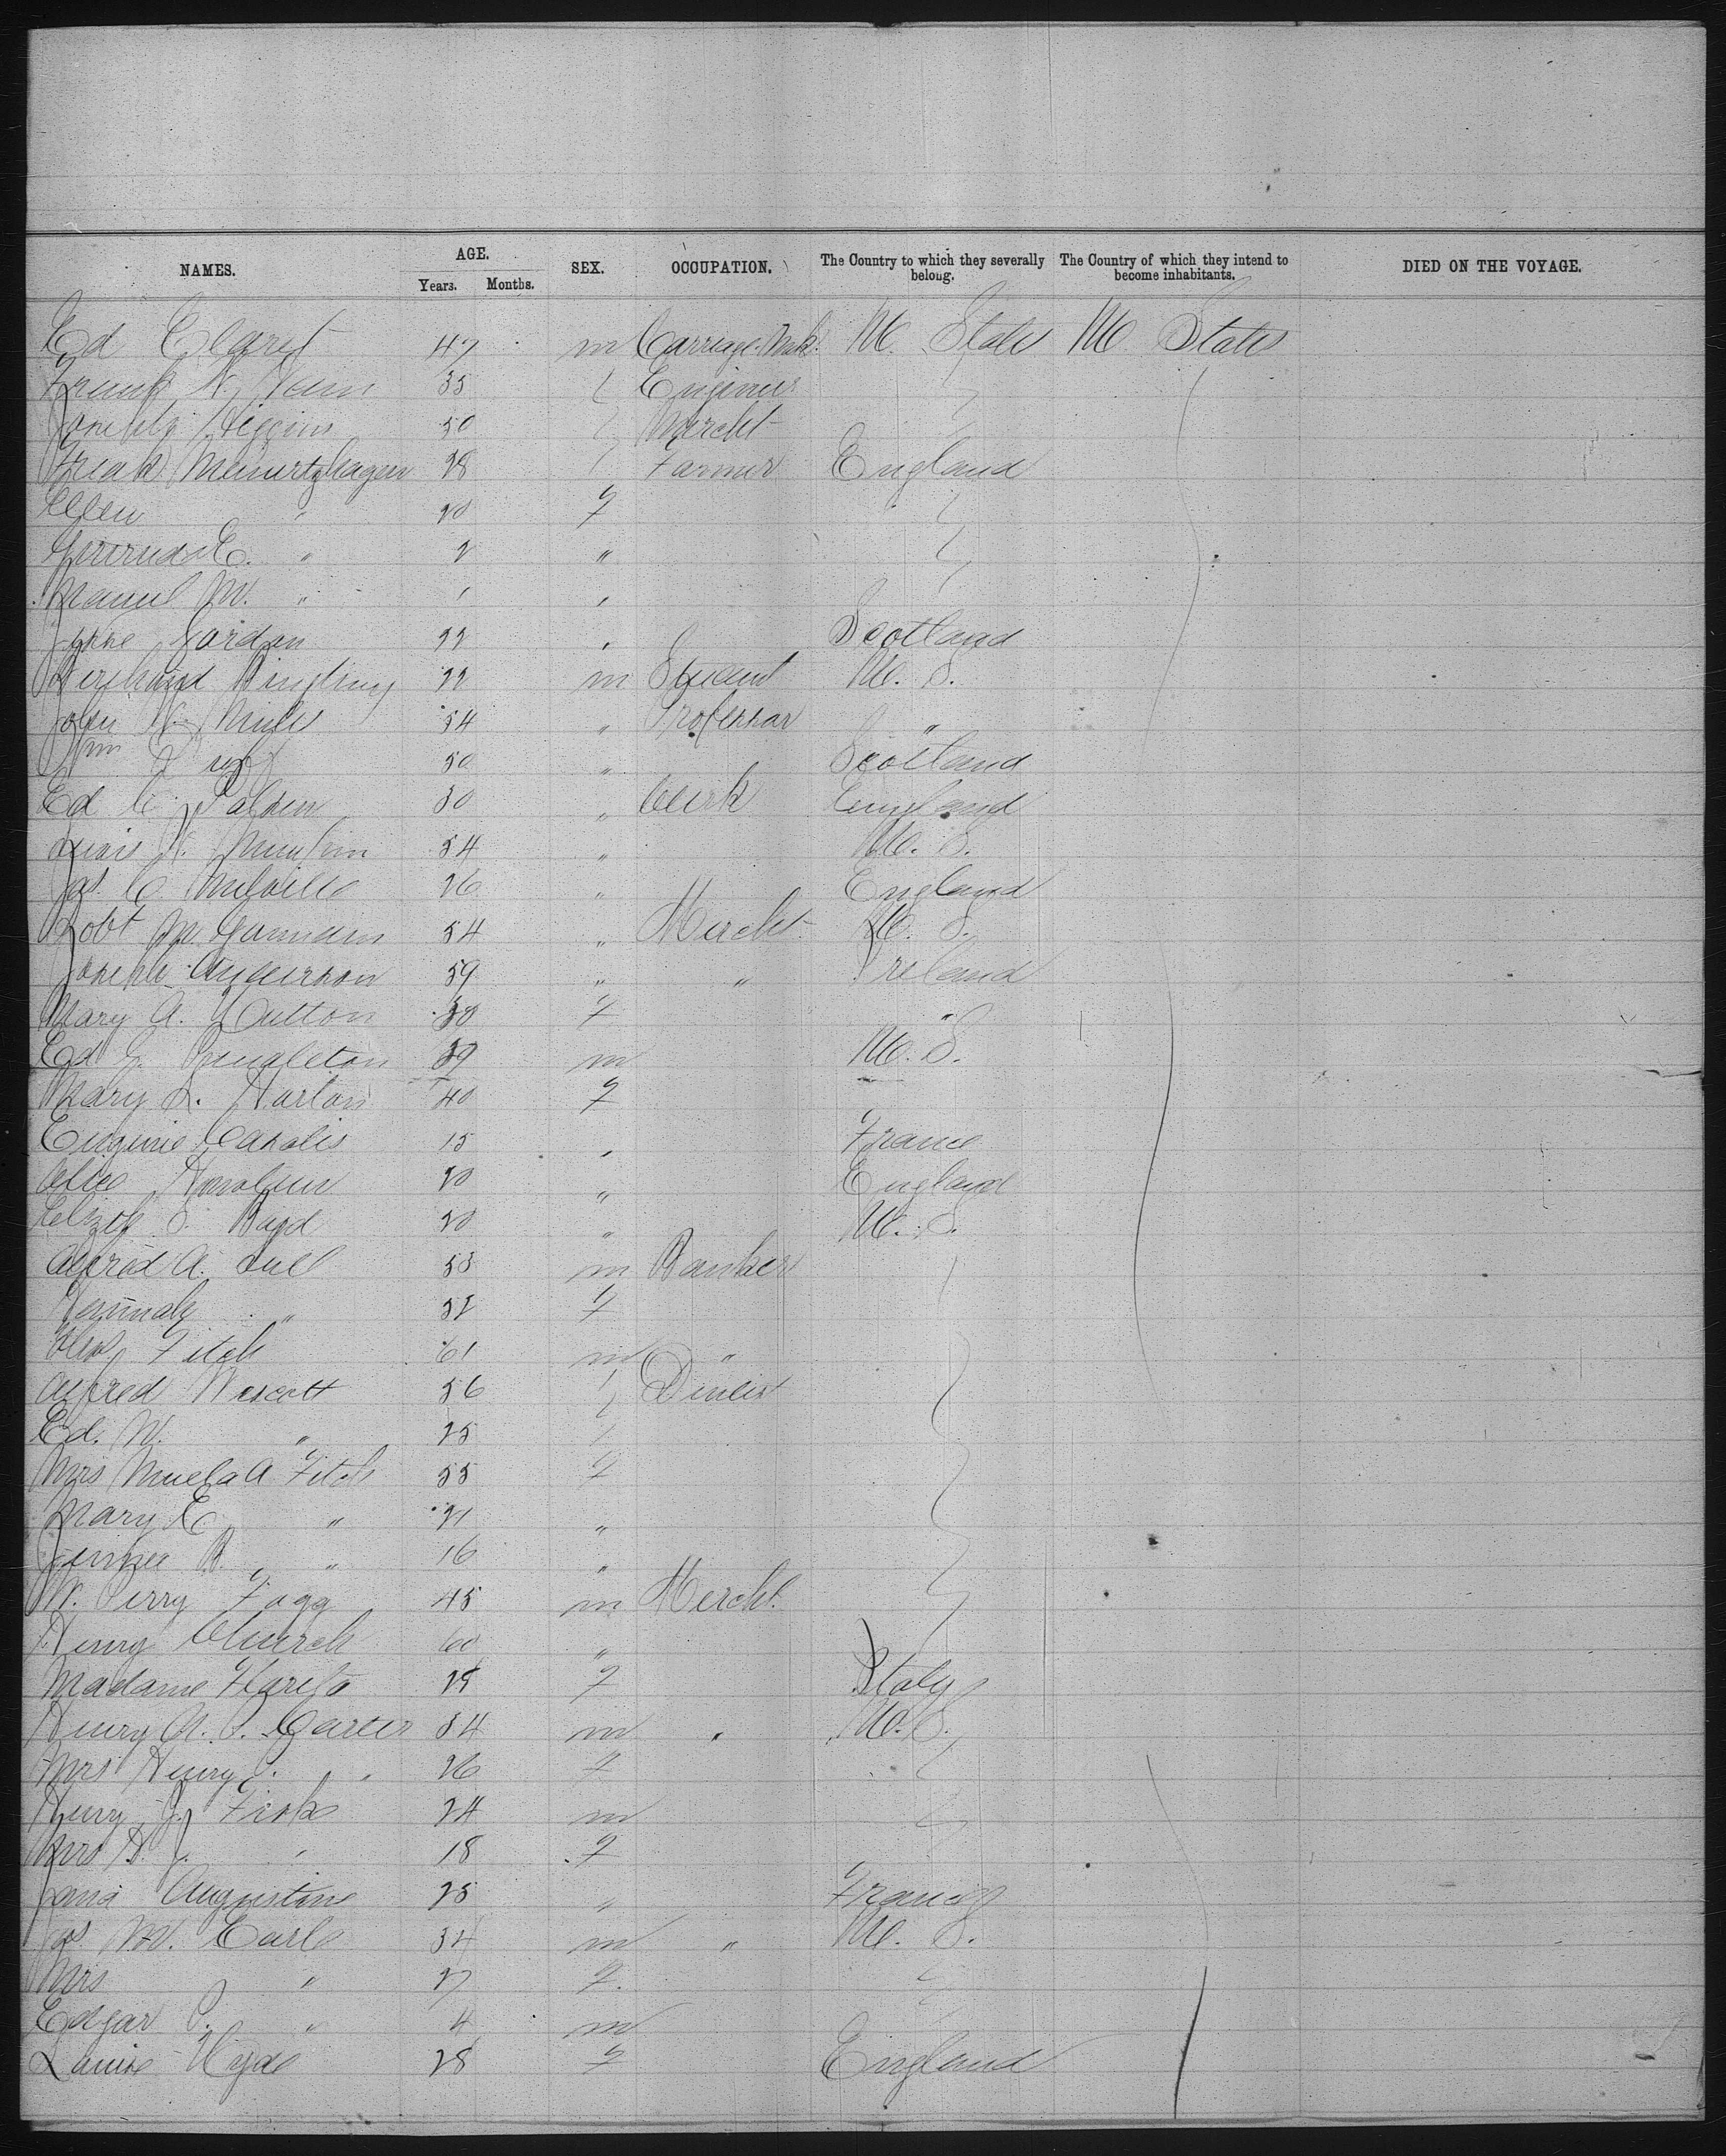 NAMES. AGE. SEX. OCCUPATION. The Country to which they severally belong. The Country of which they intend to become inhabitants. DIED ON THE VOYAGE.
Years. Months.
Ed 47 m Carriage Mak. U. States U States
Frank N. 35 Engineer
Joseph Higgins 50 Mercht
Meinertzhagen 28 Farmer England
Ellen " 20 F
Gertrude E. " 2 "
M. " 1 "
Jane Jordan 22 " Scotland
22 m Student U. S.
John W. Miles 54 " Professor "
Wm Duff 50 " Scotland
Ed C. 30 " Clerk England
54 " U. S.
Jas. C. Melville 26 " England
Robt M. 54 " Mercht U. S.
Joseph Anderson 59 " " Ireland
Mary A. Dutton 30 F "
Ed J. Pendleton 39 m U. S.
Mary L. Horton 40 F
Eugenie Casalis 15 " France
Alice 20 " England
Elizth S. Boyd 20 " U. S.
Alfred A. 53 m Banker
Hannah " 52 F
Chas Fitch 61 m "
Alfred Wescott 56 Dentist
Ed. W. " 25
Mrs A Fitch 55 F
Mary E " 21 "
Jennie B. " 16 "
W. Perry Fogg 45 m Mercht.
Henry Church 60 "
Madame 28 F Italy
Henry A. P. Carter 34 m " U. S.
Mrs Henry P. " 26 F
Henry J. Fiske 24 m
Mrs H. J. " 18 F
Augustine 25 " France
Jas M. Earle 34 m " U. S.
Mrs " 27 F.
Edgar P. " 4 m
Louise Hyde 28 F England